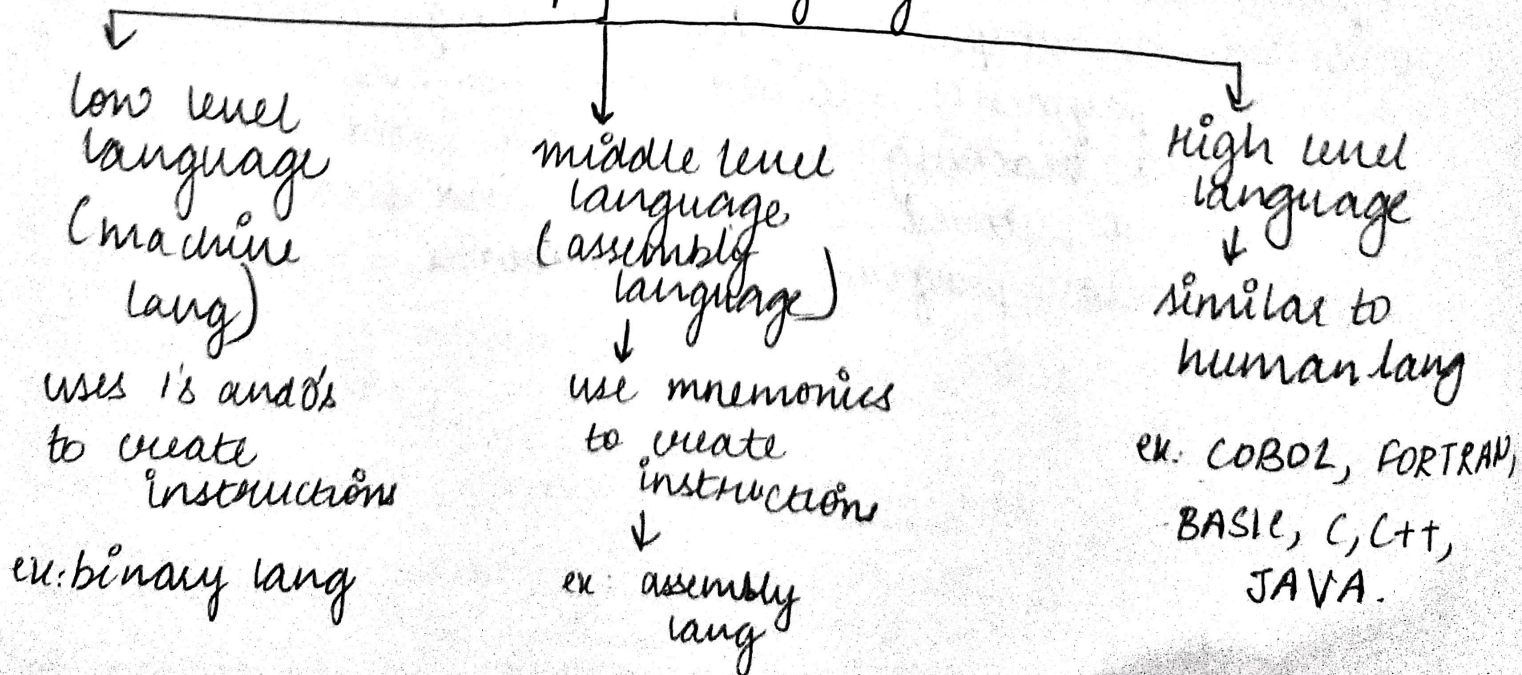 low level
language
(machine
lang)
uses 1's and 0's
to create
instructions
ex: binary lang
middle level
language
(assembly
language)
use mnemonics
to create
instructions
ex: assembly
lang
High level
language
similar to
human lang
ex: COBOL, FORTRAN,
BASIC, C, C++,
JAVA.